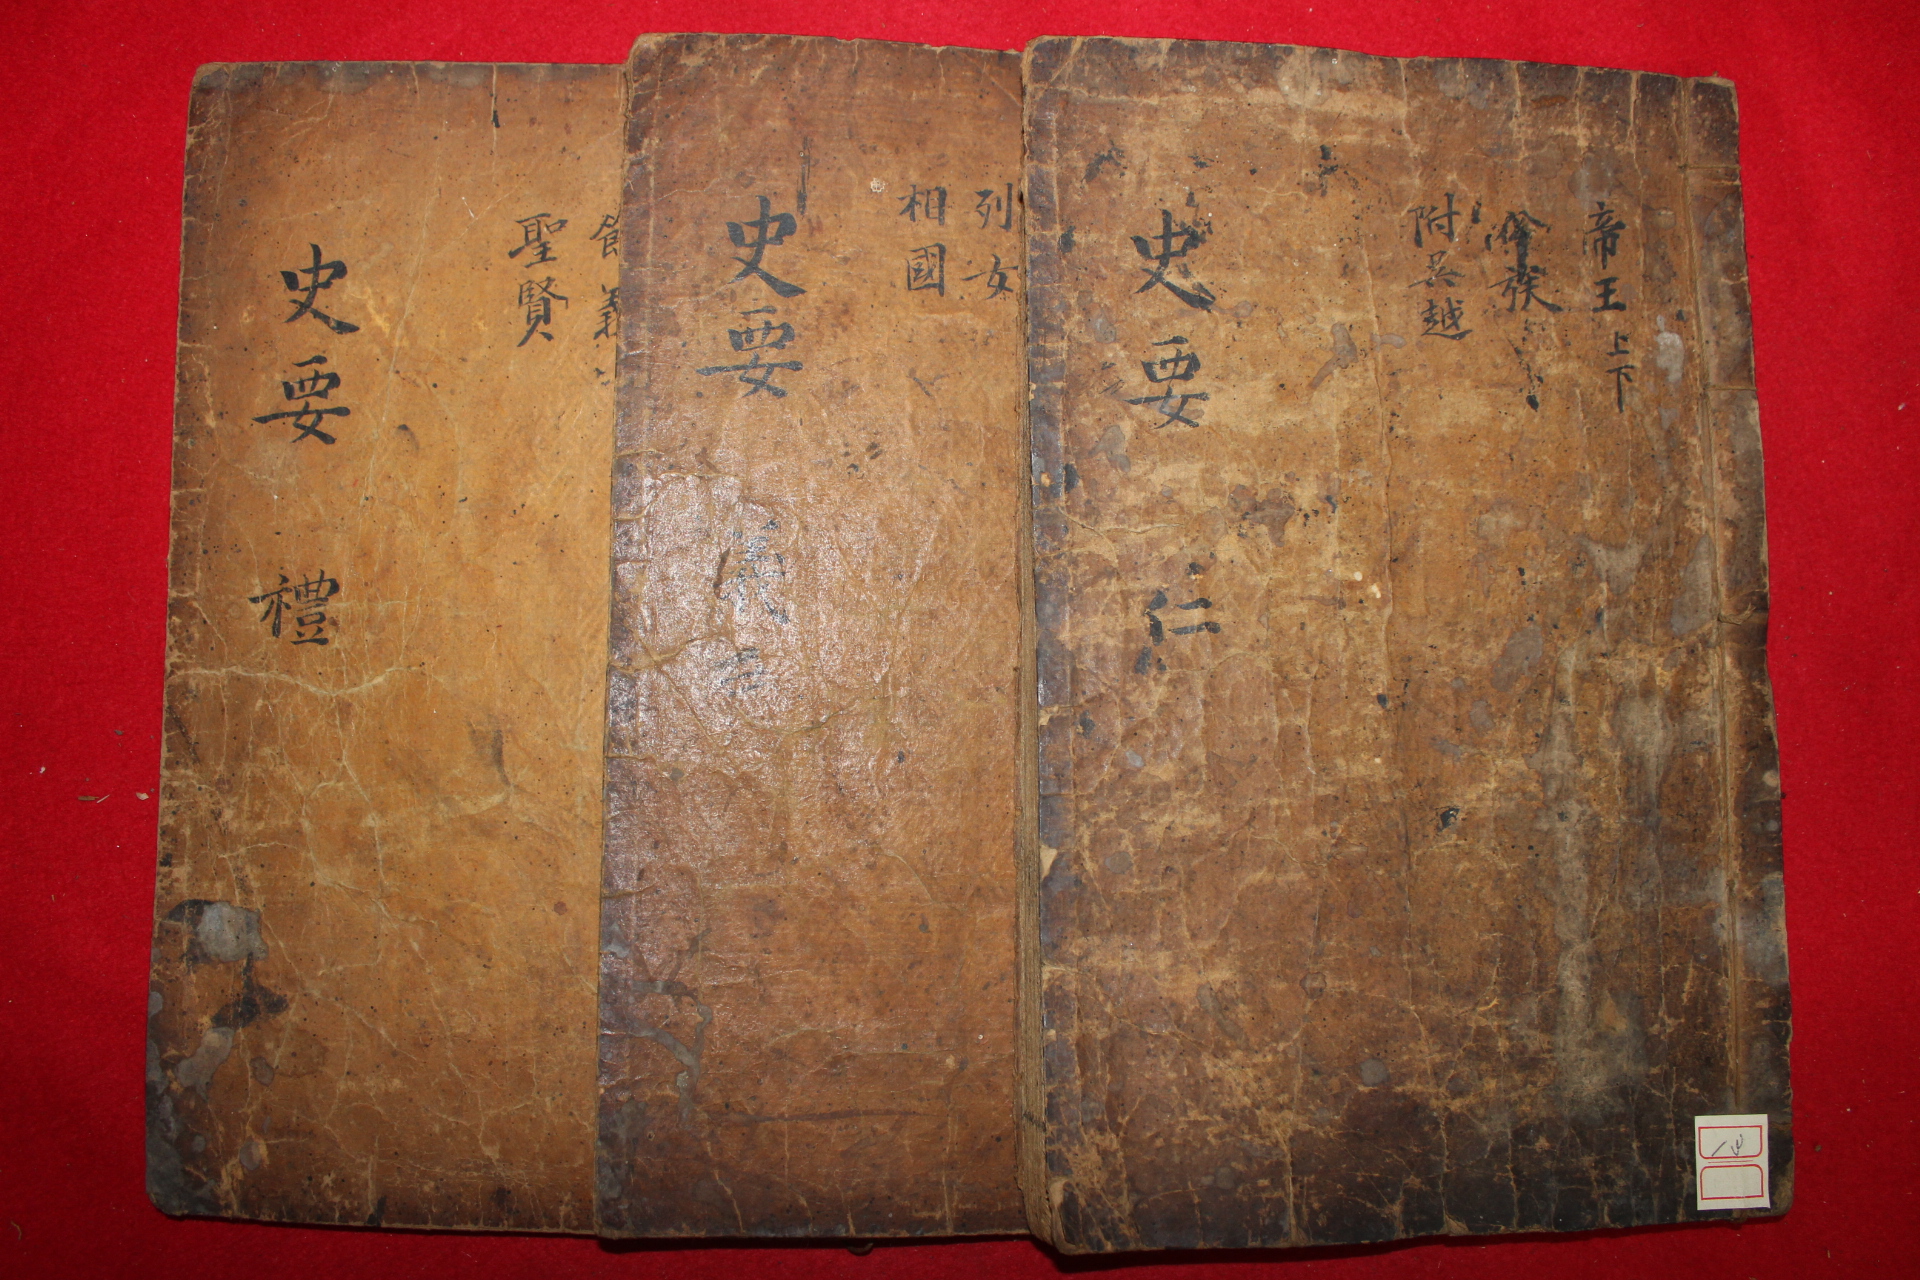 帝王 上下
族
附吳越
史要 仁
列女
相國
史要
義
聖賢
史要 禮